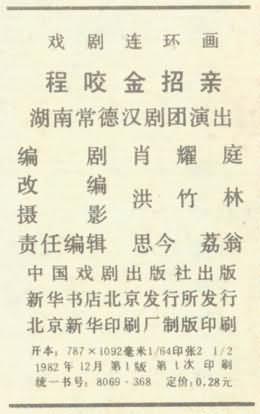 戏剧连环画
程咬金招亲
湖南常德汉剧团演出
编剧 肖耀庭
改编
摄影 洪竹林
责任编辑 思今 荔翁
中国戏剧出版社出版
新华书店北京发行所发行
北京新华印刷厂制版印刷
开本:787×1092毫米1/64印张2 1/2
1982年12月第1版 第1次印刷
统一书号:8069·368 定价:0.28元